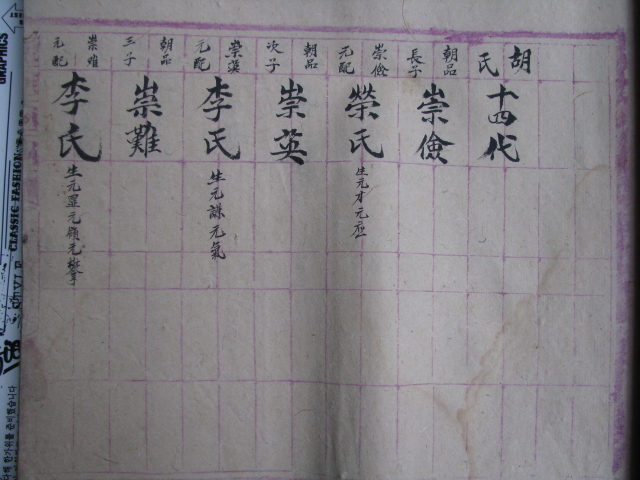 胡氏
十四代
朝品長子
崇儉
崇儉元配
榮氏
生元才元
朝品次子
崇英
崇英元配
李氏
生元謀元氣
朝品三子
崇難
崇难元配
李氏
生元罡元領元擎
CLASSIC FASHION